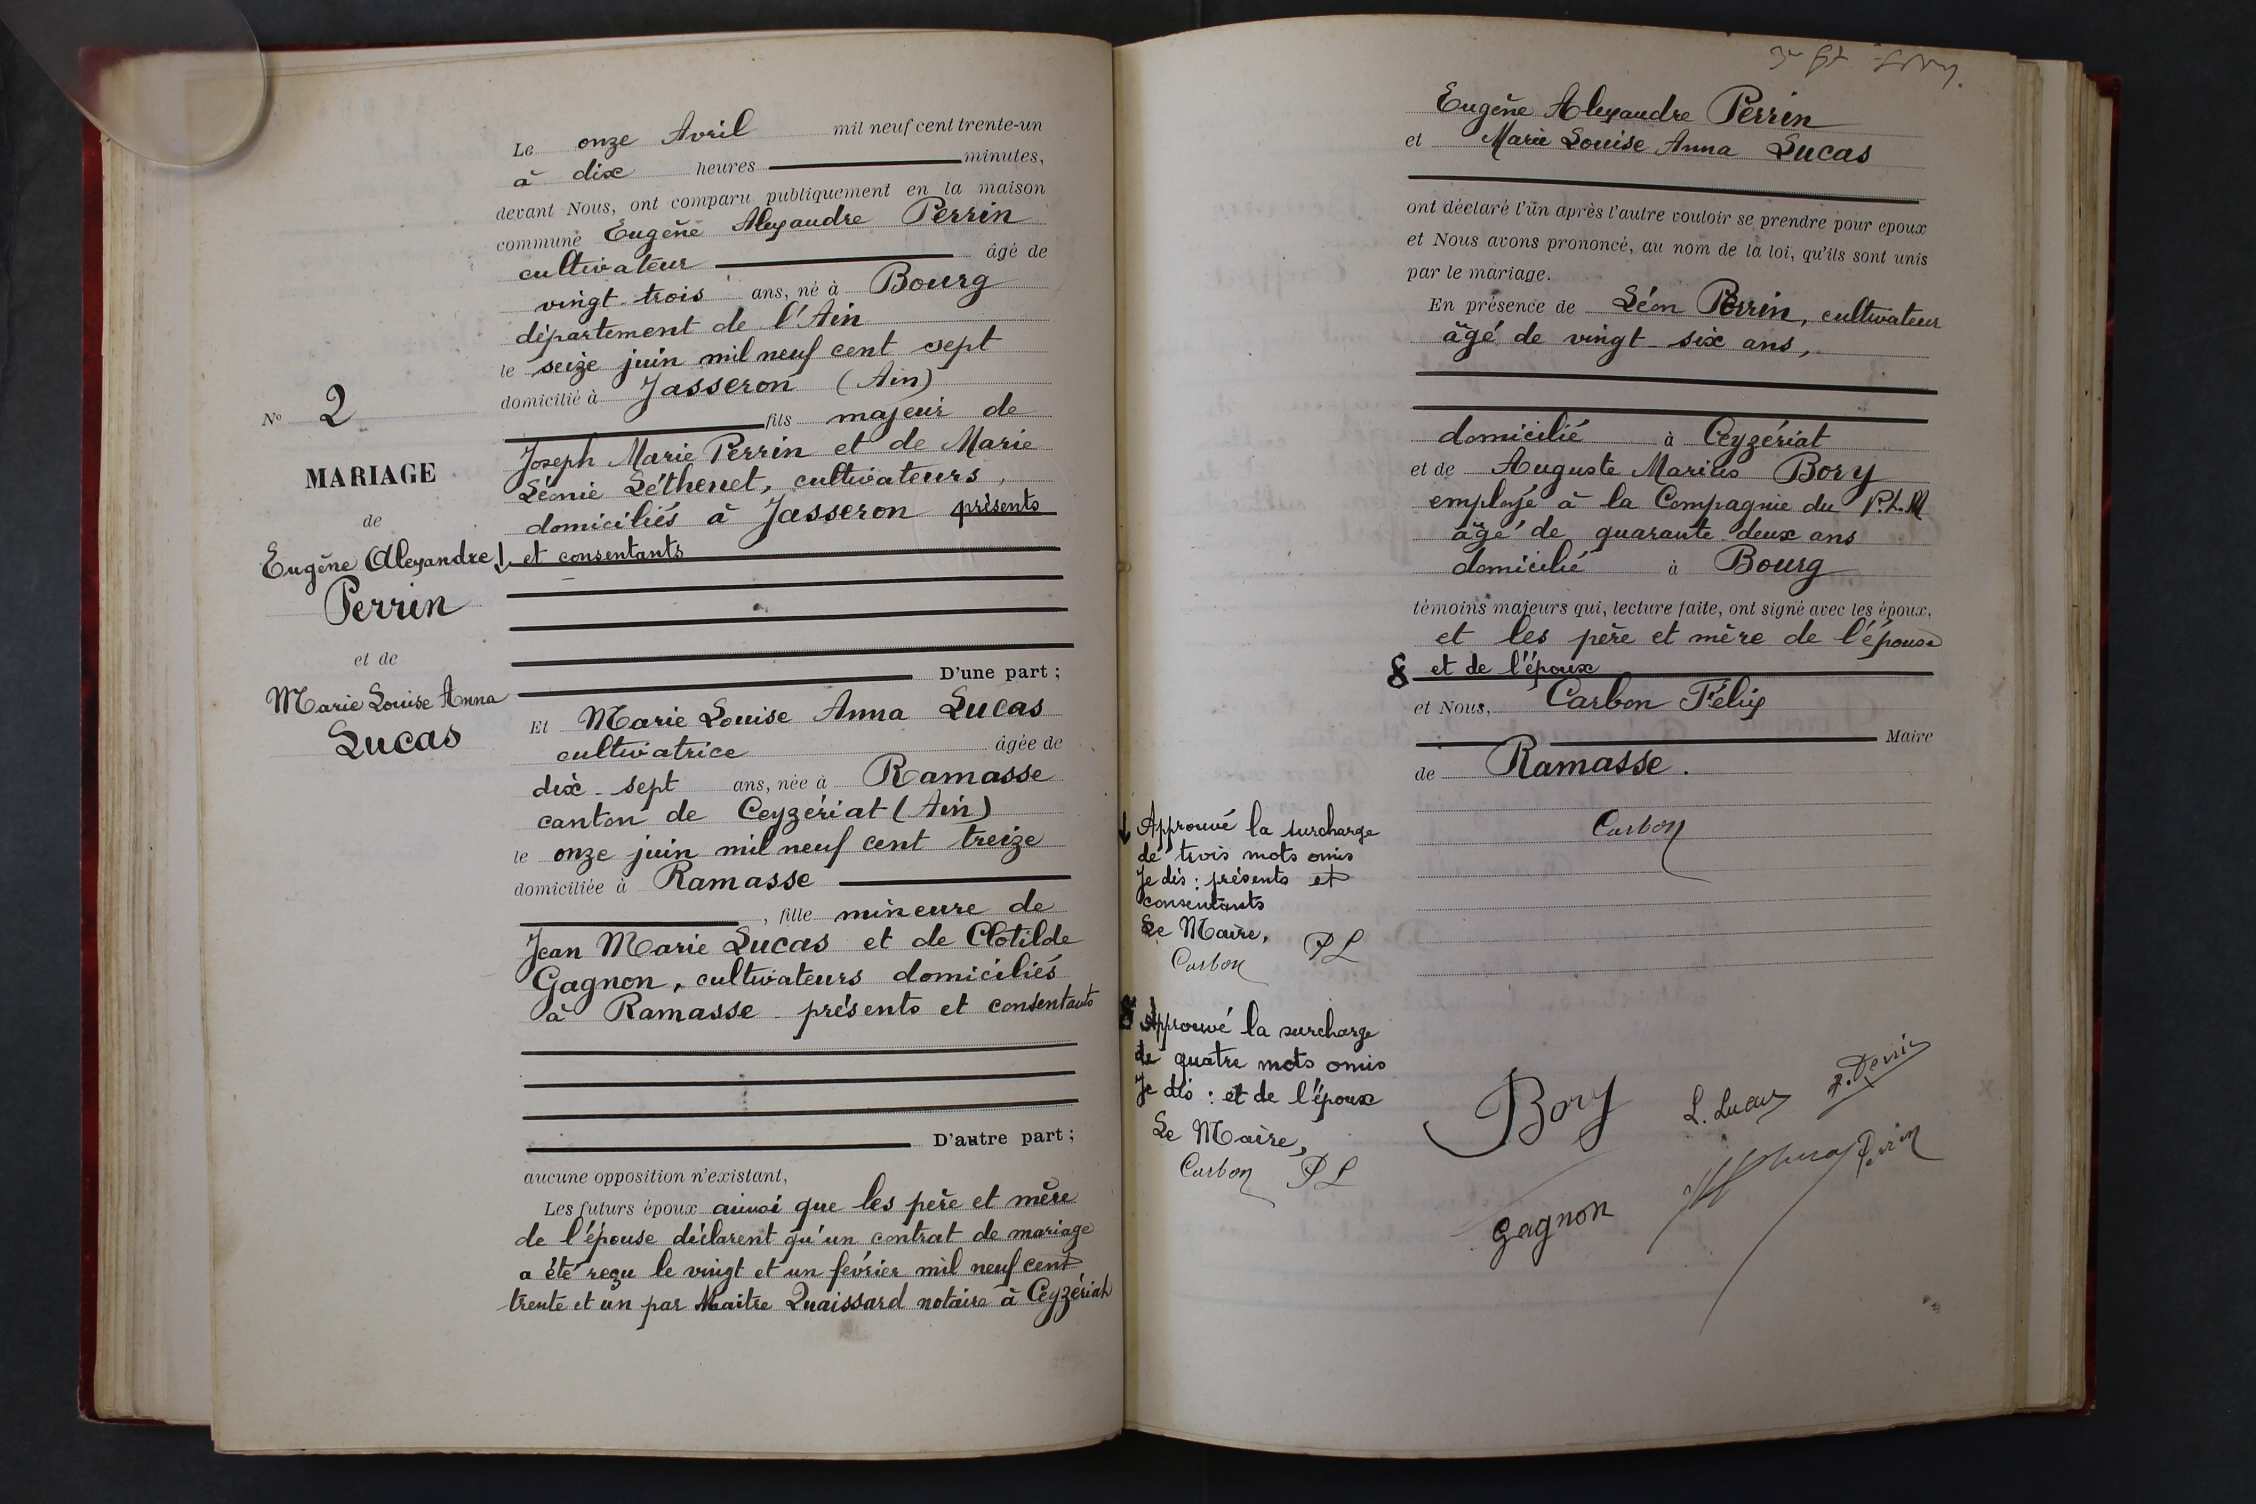 Le onze Avril mil neuf cent trente-un
à dix heures minutes,
devant Nous, ont comparu publiquement en la maison
commune Eugène Alexandre Perrin
cultivateur âgé de
vingt-trois ans, né à Bourg
département de l'Ain
le seize juin mil neuf cent sept
domicilié à Jasseron (Ain)
fils majeur de
Joseph Marie Perrin et de Marie
Léonie Léthenet, cultivateurs,
domiciliés à Jasseron présents
et consentants
D'une part;
Et Marie Louise Anna Lucas
cultivatrice âgée de
dix-sept ans, née à Ramasse
canton de Ceyzériat (Ain)
le onze juin mil neuf cent treize
domiciliée à Ramasse
, fille mineure de
Jean Marie Lucas et de Clotilde
Gagnon, cultivateurs domiciliés
à Ramasse - présents et consentants
D'autre part;
aucune opposition n'existant,
Les futurs époux ainsi que les père et mère
de l'épouse déclarent qu'un contrat de mariage
a été reçu le vingt et un février mil neuf cent
trente et un par Maître Quaissard notaire à Ceyzériat
No 2
MARIAGE
de
Eugène Alexandre
Perrin
et de
Marie Louise Anna
Lucas
Eugène Alexandre Perrin
et Marie Louise Anna Lucas
ont déclaré l'un après l'autre vouloir se prendre pour époux
et Nous avons prononcé, au nom de la loi, qu'ils sont unis
par le mariage.
En présence de Léon Perrin, cultivateur
âgé de vingt-six ans,
domicilié à Ceyzériat
et de Auguste Marius Bory
employé à la Compagnie du P.L.M
âgé de quarante deux ans
domicilié à Bourg
témoins majeurs qui, lecture faite, ont signé avec les époux,
et les père et mère de l'épouse
et de l'époux
et Nous, Carbon Félix
Maire
de Ramasse.
Carbon
Approuvé la surcharge
de trois mots omis
Je dis: présents et
consentants
Le Maire,
Carbon PL
Approuvé la surcharge
de quatre mots omis
Je dis: et de l'époux
Le Maire,
Carbon PL
Bory L. Lucas
Perrin
Gagnon